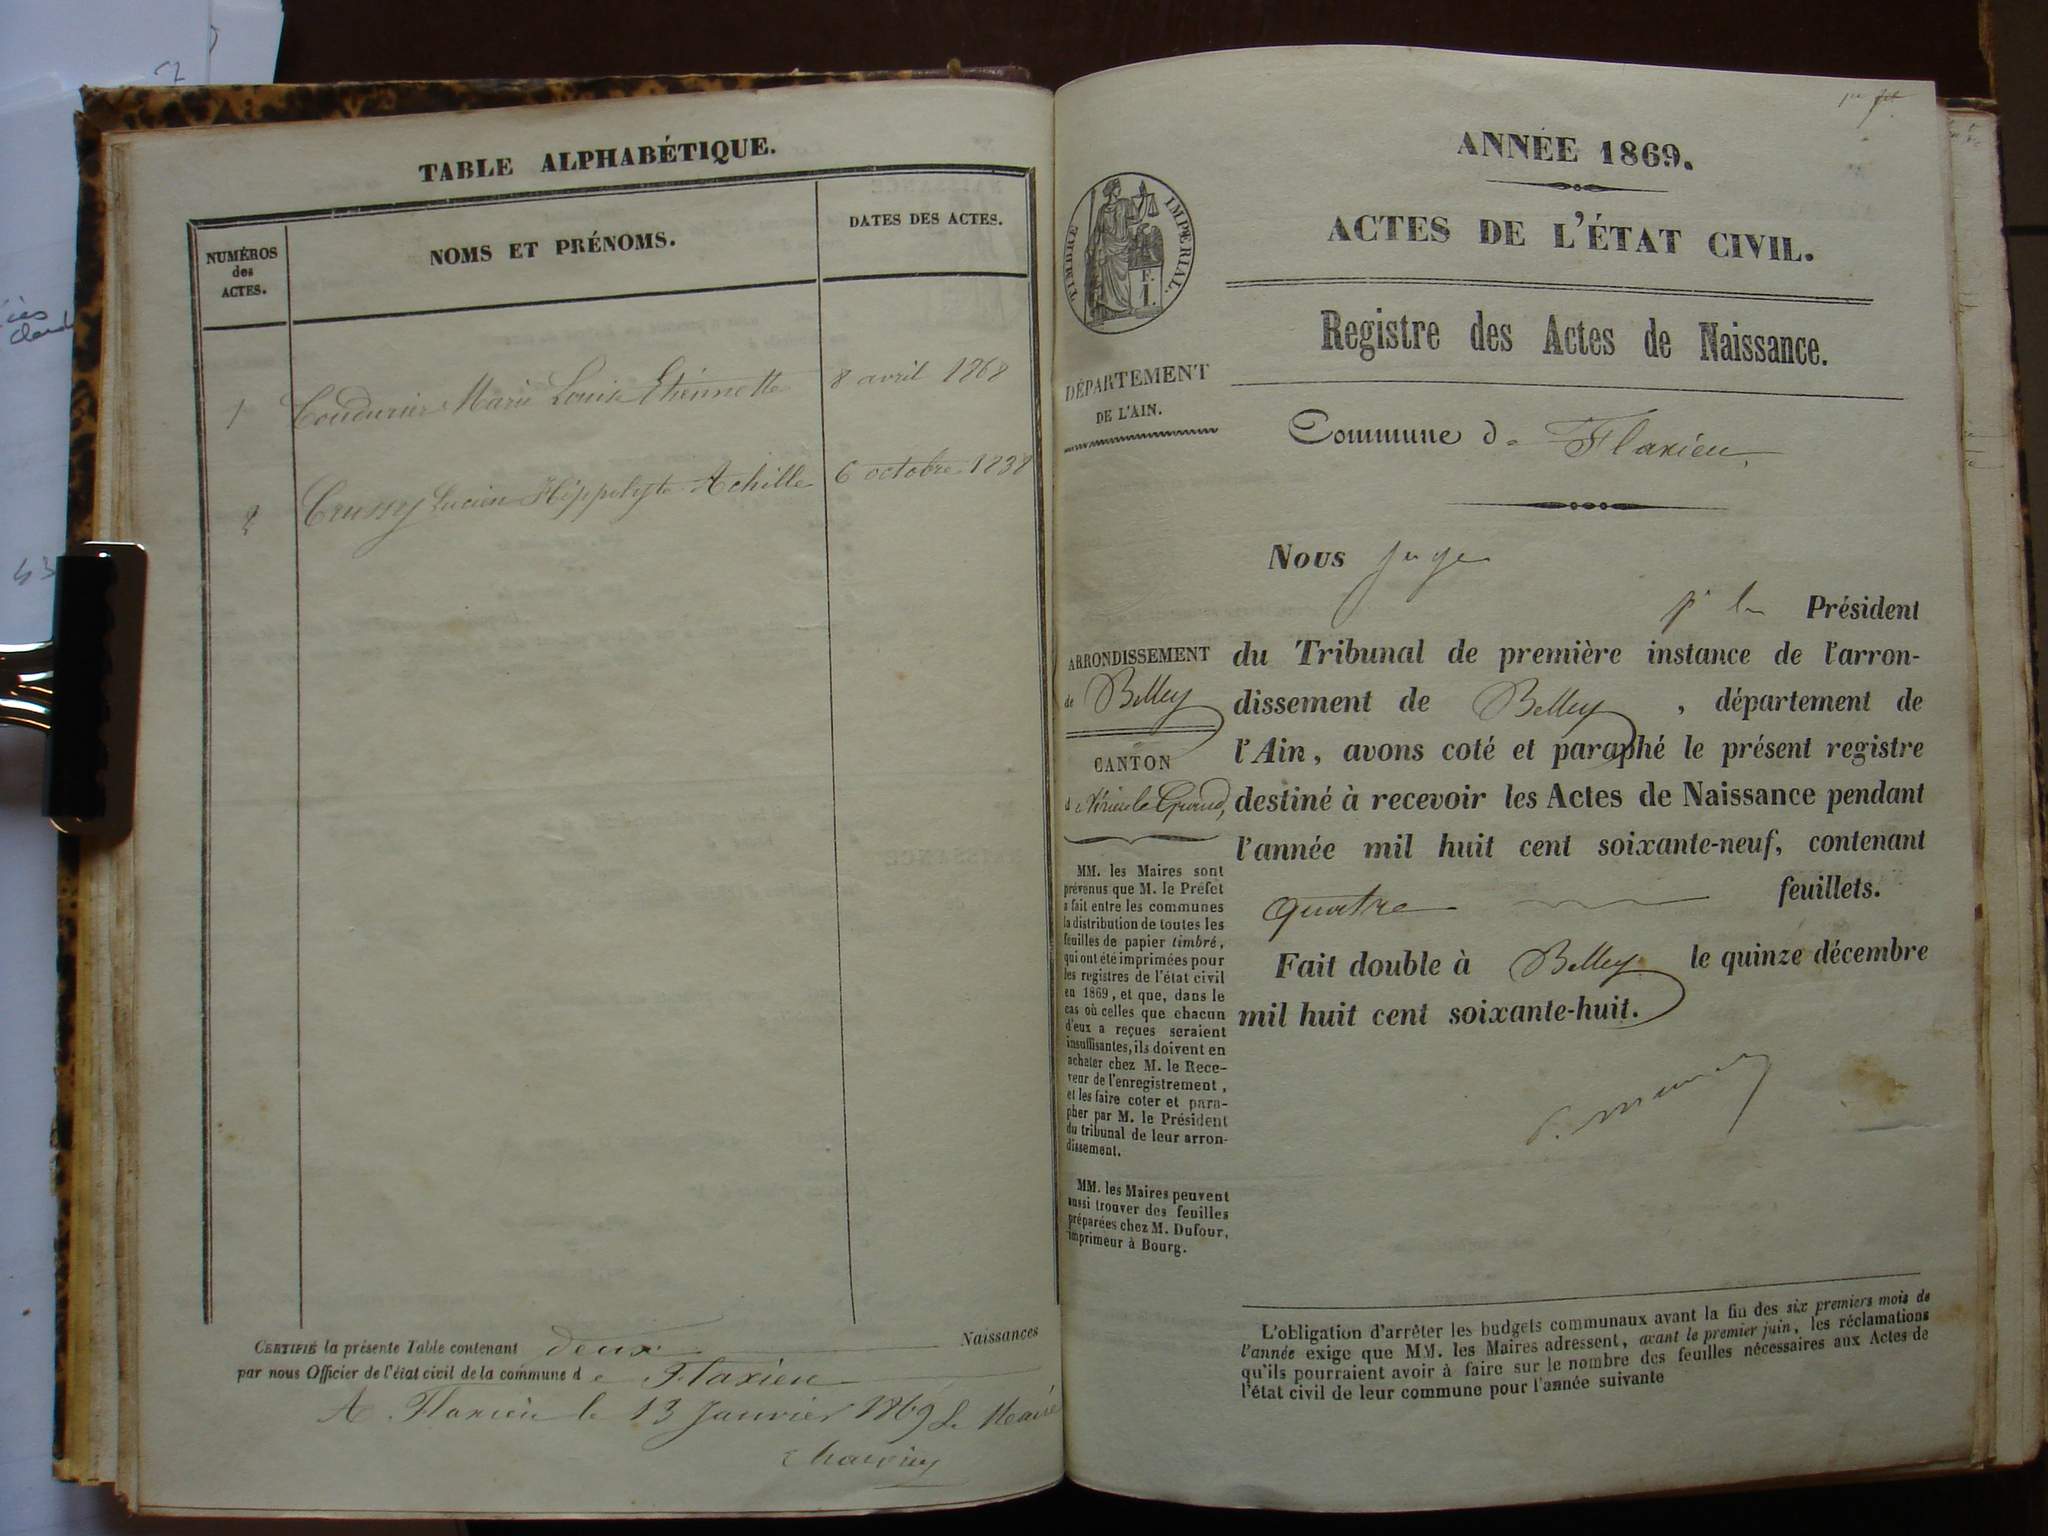 TABLE ALPHABÉTIQUE.
NUMÉROS
des
ACTES.
NOMS ET PRÉNOMS.
DATES DES ACTES.
1 Coudurier Marie Louise Etiennette 8 avril 1868
2 Crussy Lucien Hippolyte Achille 6 octobre 1838
CERTIFIÉ la présente Table contenant deux Naissances
par nous Officier de l'état civil de la commune de Flaxieu
A Flaxieu le 13 Janvier 1869 Le Maire
ANNÉE 1869.
ACTES DE L'ÉTAT CIVIL.
Registre des Actes de Naissance.
TIMBRE IMPERIAL.
DÉPARTEMENT
DE L'AIN.
Commune de Flaxieu
Nous Juge
pr le Président
du Tribunal de première instance de l'arron-
dissement de Belley, département de
l'Ain, avons coté et paraphé le présent registre
destiné à recevoir les Actes de Naissance pendant
l'année mil huit cent soixante-neuf, contenant
quatre feuillets.
Fait double à Belley le quinze décembre
mil huit cent soixante-huit.
ARRONDISSEMENT
de Belley
CANTON
de Virieu le Grand,
MM. les Maires sont
prévenus que M. le Préfet
a fait entre les communes
la distribution de toutes les
feuilles de papier timbré,
qui ont été imprimées pour
les registres de l'état civil
en 1869, et que, dans le
cas où celles que chacun
d'eux a reçues seraient
insuffisantes, ils doivent en
acheter chez M. le Rece-
veur de l'enregistrement,
et les faire coter et para-
pher par M. le Président
du tribunal de leur arron-
dissement.
MM. les Maires peuvent
aussi trouver des feuilles
préparées chez M. Dufour,
imprimeur à Bourg.
L'obligation d'arrêter les budgets communaux avant la fin des six premiers mois de
l'année exige que MM. les Maires adressent, avant le premier juin, les réclamations
qu'ils pourraient avoir à faire sur le nombre des feuilles nécessaires aux Actes de
l'état civil de leur commune pour l'année suivante